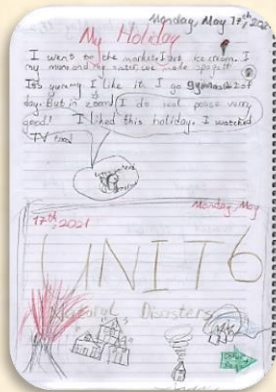 Monday, May 17th, 2021
My Holiday
I went to the market. I ate ice cream. I
my mom and the sister, we made spagetti
It's yummy I like it. I go gymnastic of
day. But in zoom! I do real pose very
good! I liked this holiday. I watched
TV too!
Monday, May
17th, 2021
UNIT 6
Natural Disasters